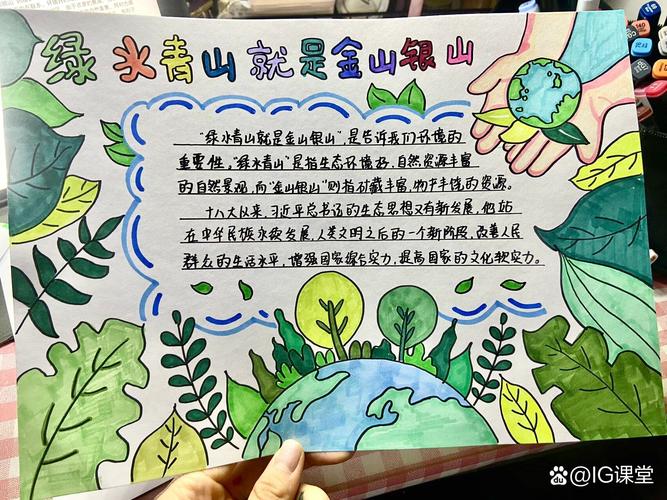 绿水青山就是金山银山
"绿水青山就是金山银山",是告诉我们环境的
重要性,"绿水青山"是指生态环境好,自然资源丰富
的自然景观,而"金山银山"则指矿藏丰富,物产丰饶的资源。
十八大以来,习近平总书记的生态思想又有新发展,他站
在中华民族永续发展,人类文明之后的一个新阶段,改善人民
群众的生活水平,增强国家综合实力,提高国家的文化软实力。
@IG课堂